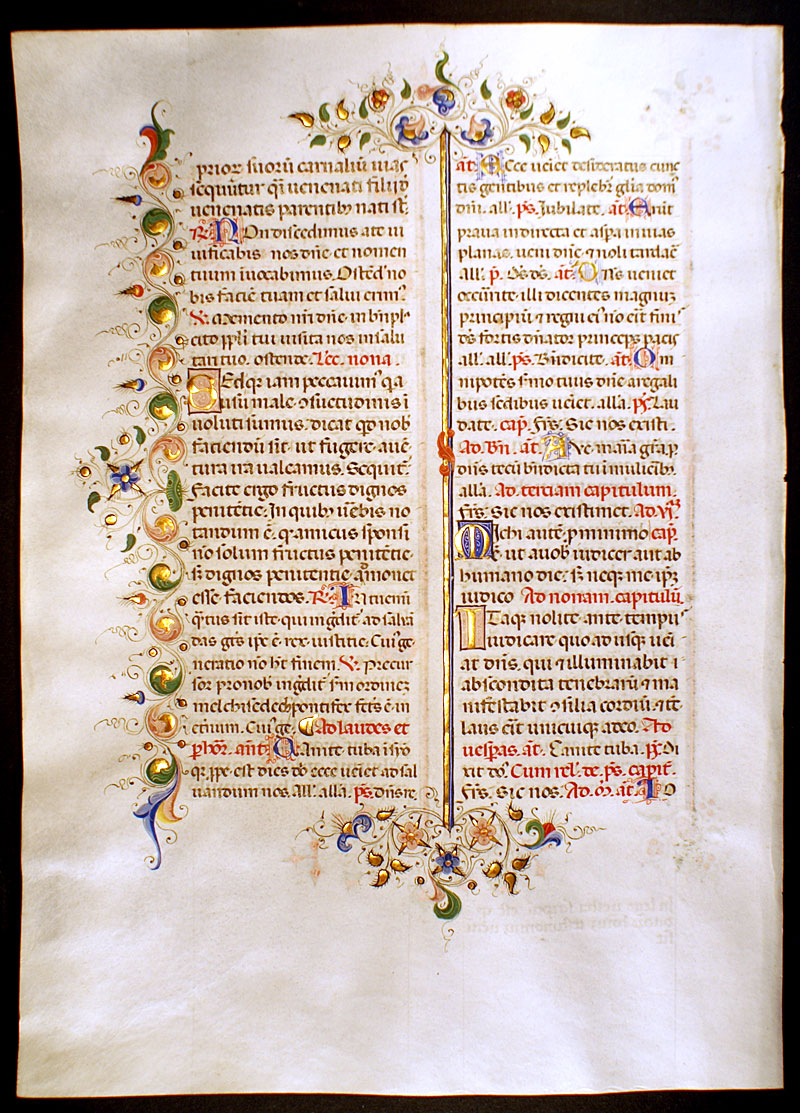 prior suorū carnaliū uias
sequūtur qr uenenati filij ò
uenenatis parentibȝ nati st̄.
R̄. Non discedimus a te ui
uificabis nos dn̄e et nomen
tuum īuocabimus. Ostēd' no
bis faciē tuam et salui erim'.
V. Memento nr̄i dn̄e in bn̄pl'
cito ppl'i tui uisita nos in salu
tari tuo. ostende. Lec. nona.
Sed qr iam peccauim' q a
usu male ɔsuetudinis ī
uoluti sumus. dicat qd nob'
faciendū sit. ut fugere a uē
tura ira ualeamus. Sequit'.
Facite ergo fructus dignos
penitētie. In quibȝ uebis no
tandum ē. q amicus sponsi
no solum fructus penitētie
sȝ dignos penitentie amonet
esse faciendos. R̄. Intuemī
q̄tus sit iste qui ingdit' ad saluā
das gēs ip̄e ē rex iustitie. Cui' ge
neratio no ht finem V. Precur
sor pro nob' ingdit' sm ordinez
melchisedech pontifex fcs ē in
eternum. Cui' ge. Ad laudes et
p hor. ant. Canite tuba ī syo
q ppe est dies dī ecce ueiet ad sal
uandum nos. All'. alla. ps. Dn̄s re.
at. Ecce ueiet desideratus cunc
tis gentibus et replebr gl'ia dom'
dn̄i. all'. ps. Jubilate. at. Erūt
praua in directa et asp̄a in uias
planas. ueni dn̄e ⁊ noli tardae
all'. p. Ds ds. at. Dn̄s ueniet
occurite illi dicentes magnuȝ
principiū ⁊ regni ei' no erit fini'
ds fortis dn̄ator princeps pacis
all'. all'. ps. Bn̄dicite. at. Om
nipotēs s'mo tuus dn̄e a regali
bus sedibus ueiet. alla. ps. Lau
date. cap. Frs. Sic nos existi.
Ad. Bn̄. at. Aue maria gr̄a p
dn̄s tecū bn̄dicta tu ī mulieribȝ.
alla. Ad terciam capitulum.
Frs. Sic nos existimet. Ad. vj.
Michi autē p minimo cap.
ē. ut a uob' iudicer aut ab
humano die. sȝ neqȝ me ip̄ȝ
iudico Ad nonam. capitulū.
Itaqȝ nolite ante tempu'
iudicare quo ad usqȝ uei
at dn̄s. qui ⁊ illuminabit
abscondita tenebrarū ⁊ ma
nifestabit ɔsilia cordiū. ⁊ tc̄
laus erit unicuiqȝ a deo. Ad
uesp̄as. at. Canite tuba. ps. Di
xit do'. Cum rel'. de. ps. capit'.
Frs. Sic nos. Ad. m. at. O